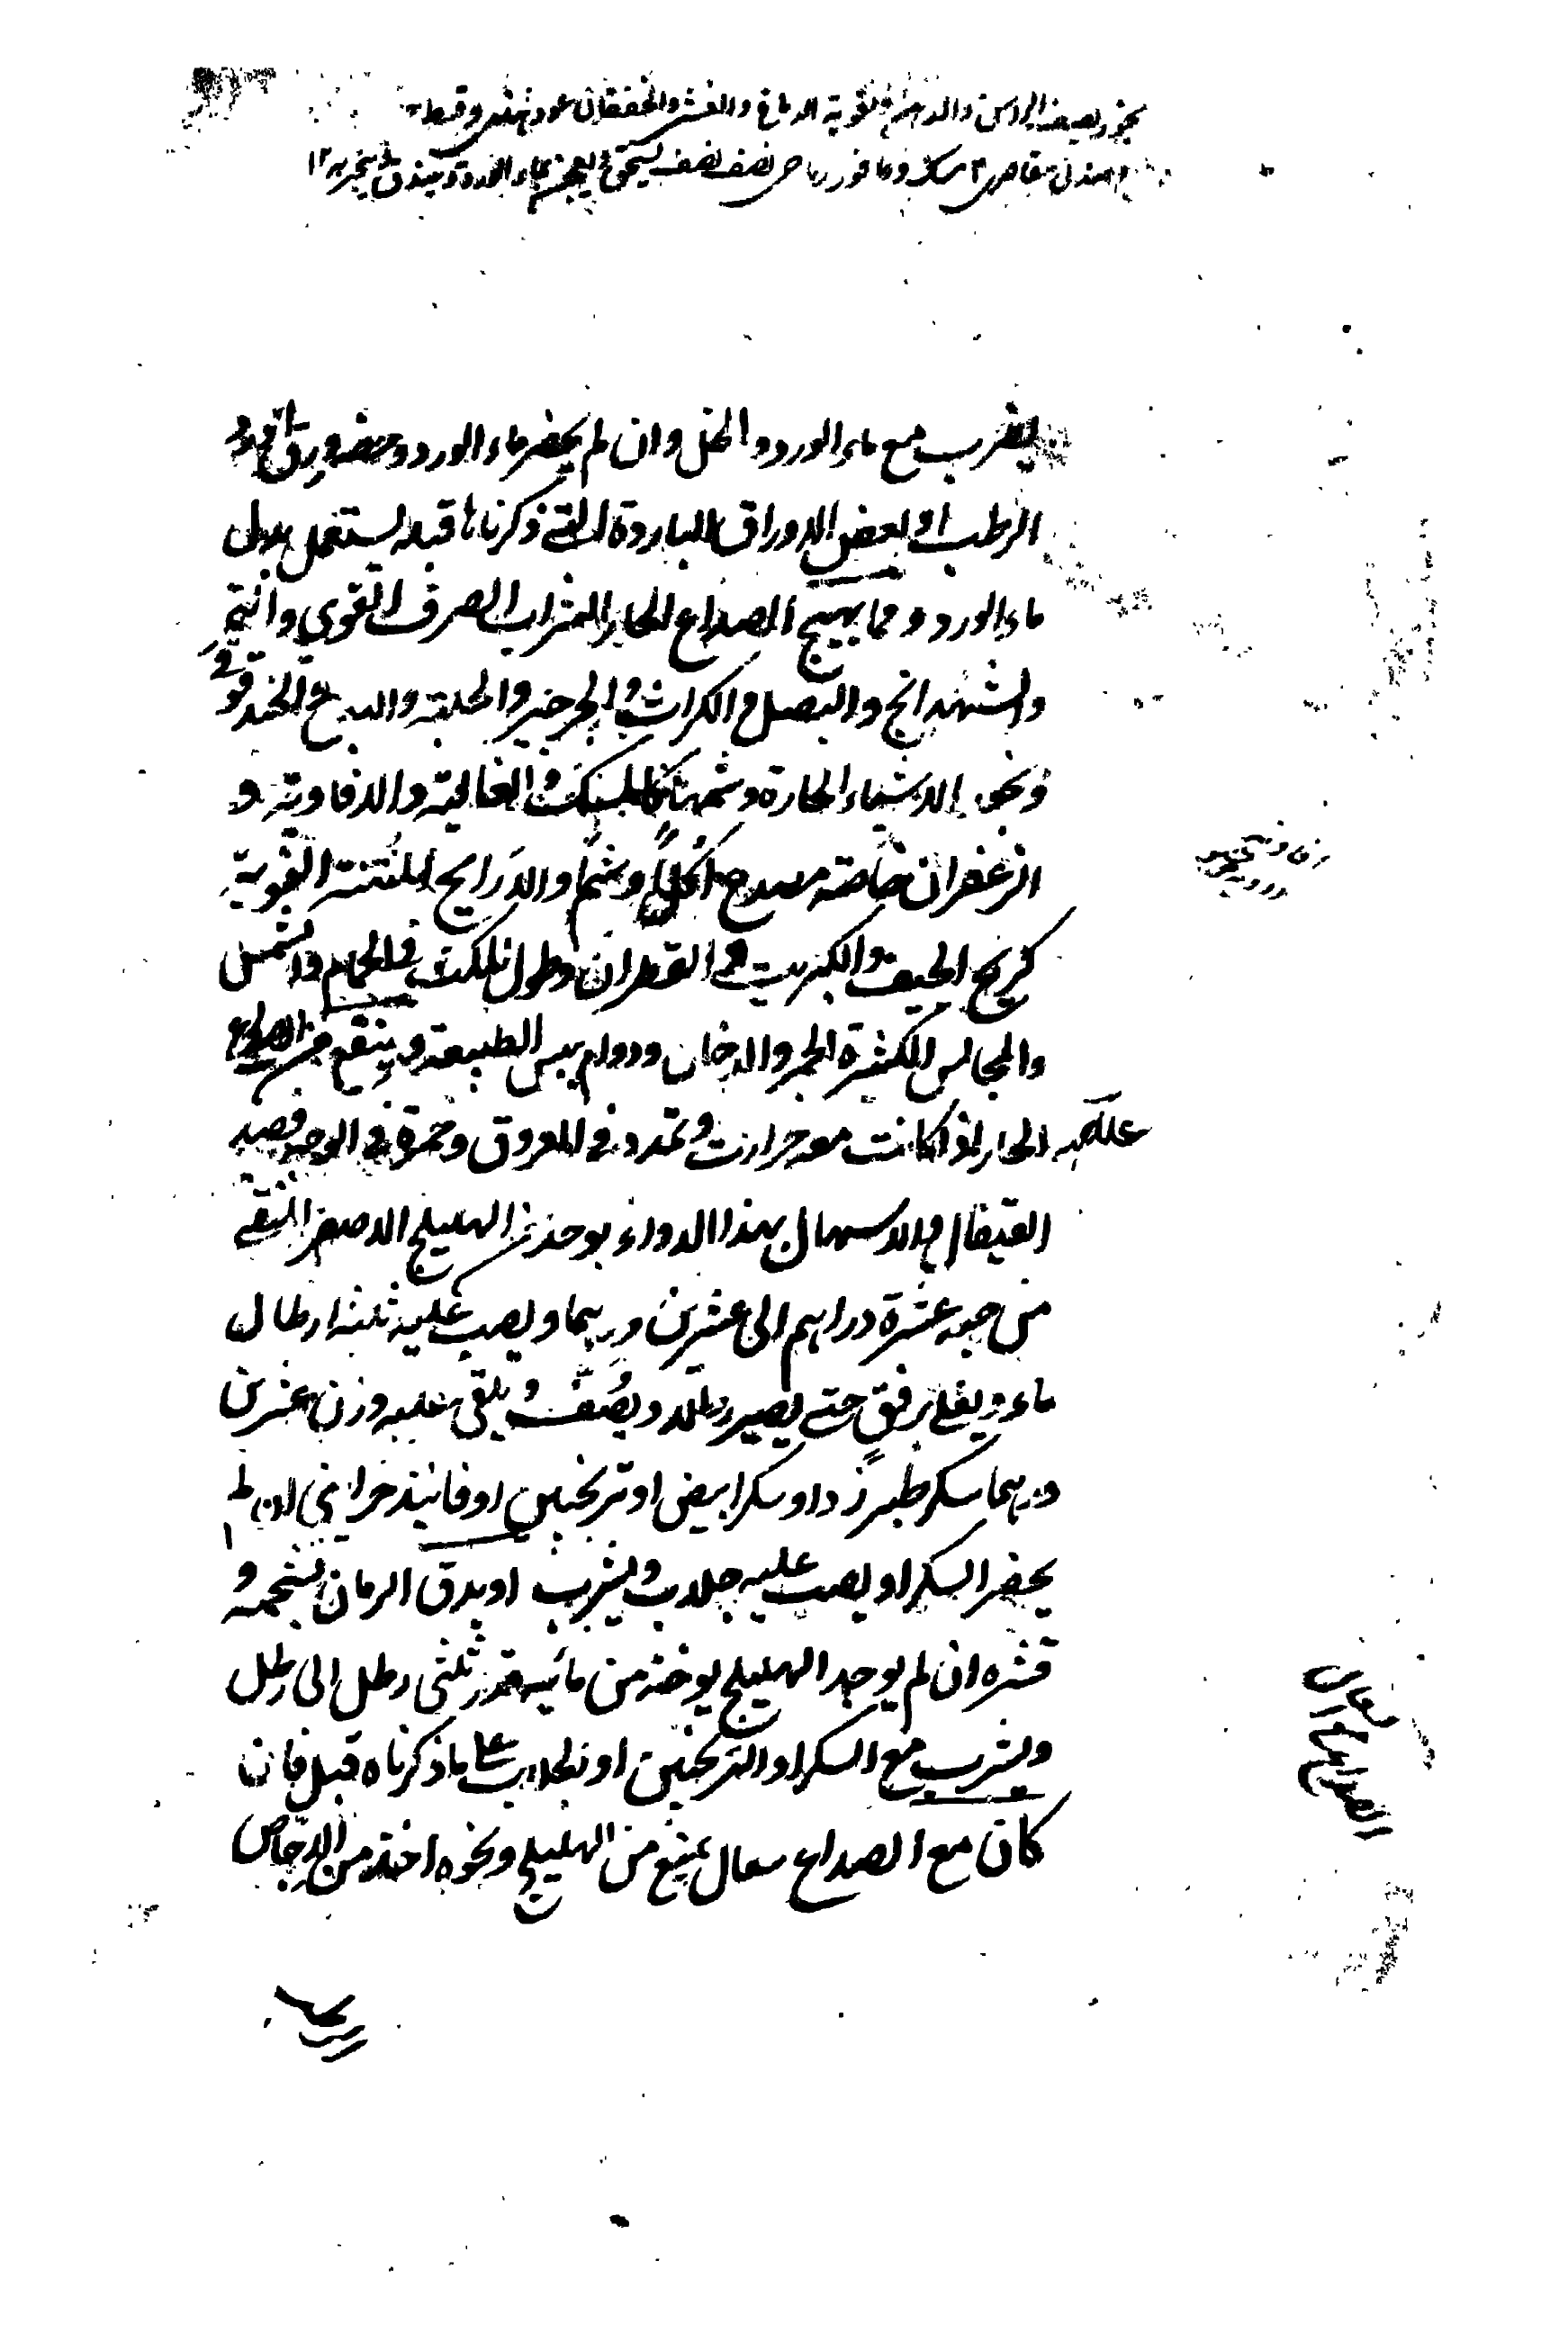 بخور يصفي الحواس والدهن وتقوية الدماغ والغشي والخفقان عود هندي وقسط
صندل مقاصري ٢ مسك وكافور رياحي نصف نصف يسحق ويعجن بماء الورد ويبندق ويتبخر به ١٢
يضرب مع ماء الورد والخل وان لم يحضر ماء الورد وحضر ورق الورد
الرطب او بعض الاوراق الباردة التي ذكرناها قبله يستعمل بدل
ماء الورد ومما يهيج الصداع الحار الشراب الصرف القوي والثوم
والشهدانج والبصل والكراث والجرجير والحلبة والبدروج الحندقوقي
ونحو الاشياء الحارة وشمها كالمسك والغالية والافاوية و
الزعفران خاصة مصدع اكلاً وشماً والروايح المنتنة القوية
كريح الجيف والكبريت والقطران وطول المكث في الحمام والشمس
والمجالس الكثيرة الجمر والدخان ودوام يبس الطبيعة وينفع من الصداع
الحار اذا كانت معه حرارت وتمدد في العروق وحمرة في الوجه فصد
علاجه
القيفال والاسهال بهذا الدواء يوخذ من الهليلج الاصفر المنقي
من حبه عشرة دراهم الى عشرين درهما ويصب عليه ثلثة ارطال
ماء ويغلى برفق حتى يصير رطلا ويصفى ويلقى عليه وزن عشرين
درهما سكر طبرزد او سكر ابيض او ترنجبين او فانيذ خزايني ان لم
يحضر السكر او يصب عليه جلاب ويشرب او يدق الرمان بشحمه و
قشره ان لم يوجد الهليلج يوخذ من مائيه قدر ثلثي رطل الى رطل
ويشرب مع السكر او الترنجبين او الجلاب على ما ذكرناه قبل فان
كان مع الصداع سعال يمنع من الهليلج ونحوه اخذ من الاجاص
سعال
الصداع